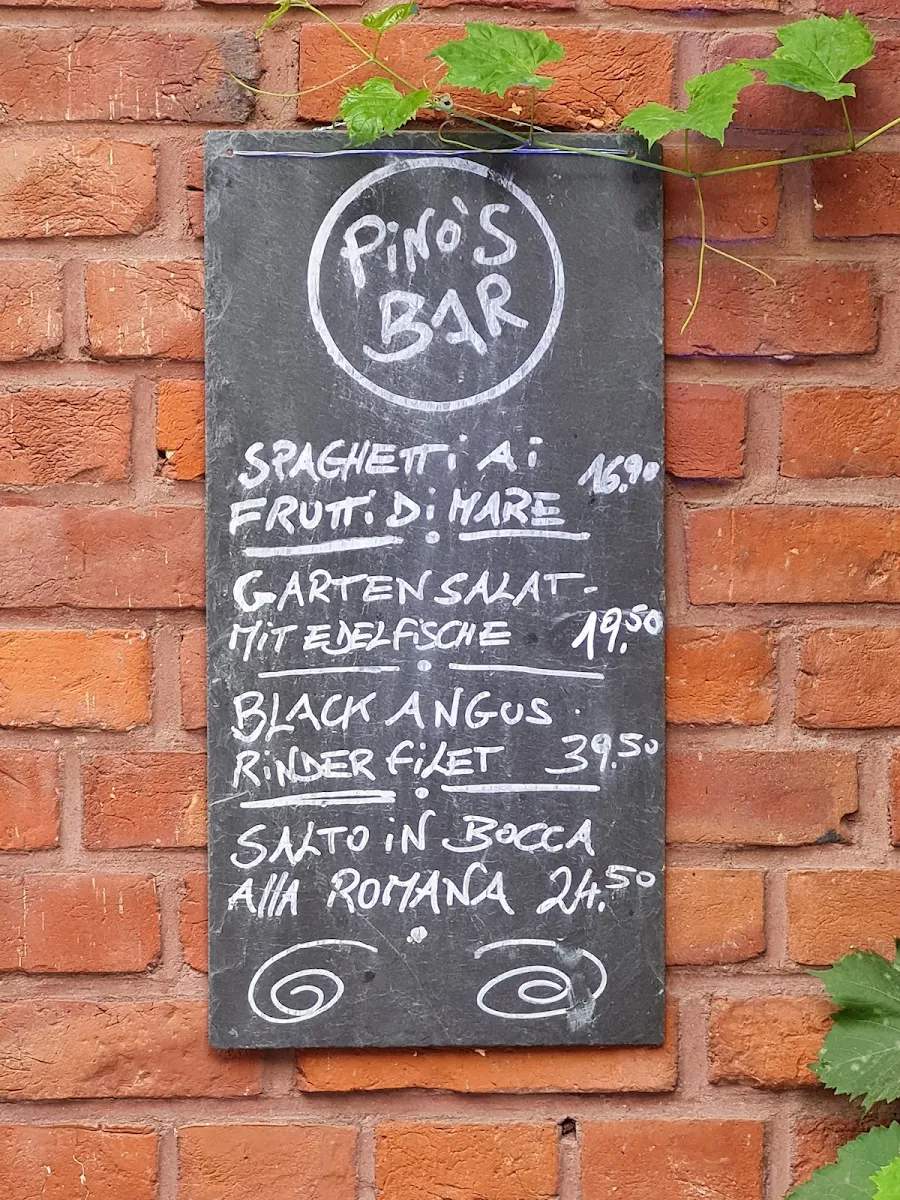 PiNO'S
BAR
SPAGHETTi Ai
FRUTTi Di MARE 16.90
GARTENSALAT-
MiT EDELFiSCHE 19.50
BLACK ANGUS
RiNDERFiLET 39.50
SALTO iN BOCCA
AllA ROMANA 24.50